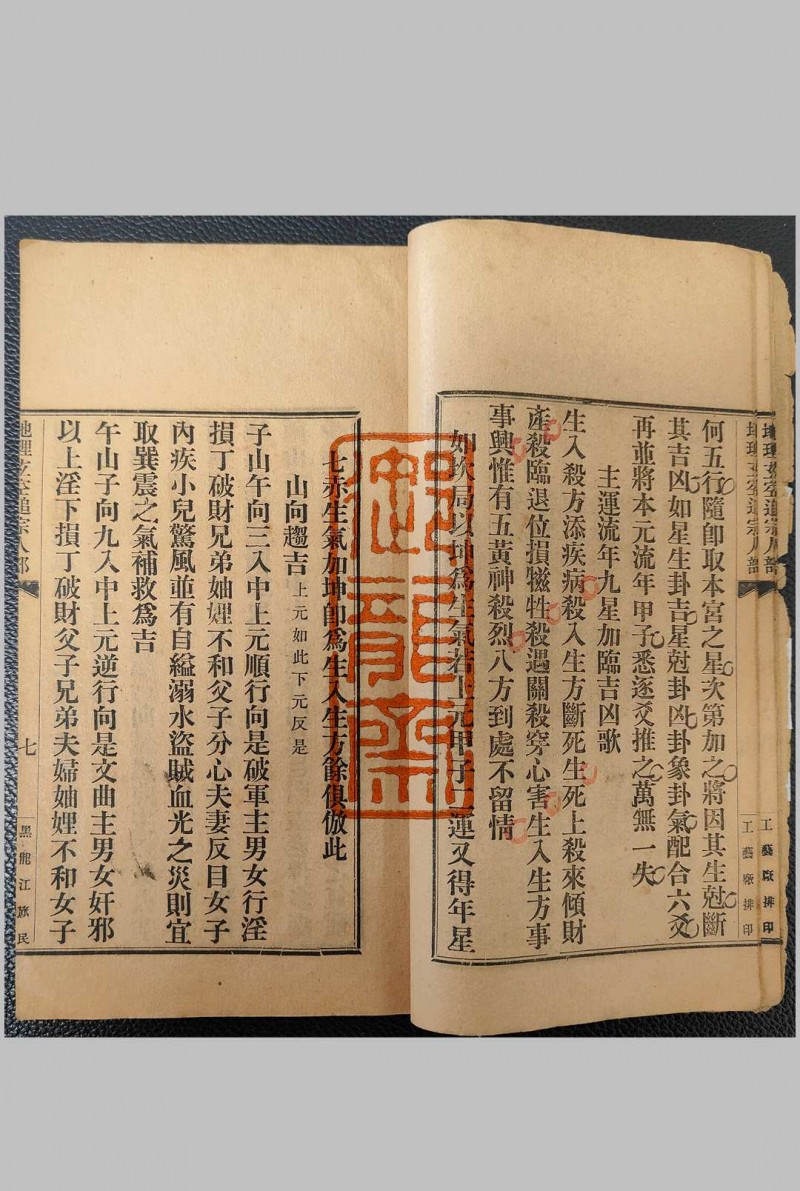 何五行隨卽取本宮之星次第加之將因其生尅斷
其吉凶如星生卦吉星尅卦凶卦象卦氣配合六爻
再並將本元流年甲子悉逐爻推之萬無一失
主運流年九星加臨吉凶歌
生入殺方添疾病殺入生方斷死生死上殺來傾財
產殺臨退位損犧牲殺遇關殺穿心害生入生方事
事興惟有五黃神殺烈八方到處不留情
如坎局以坤爲生氣若上元甲子二運又得年星
七赤生氣加坤卽爲生入生方餘俱倣此
山向趨吉上元如此下元反是
子山午向三入中上元順行向是破軍主男女行淫
損丁破財兄弟妯娌不和父子分心夫妻反目女子
內疾小兒驚風並有自縊溺水盜賊血光之災則宜
取巽震之氣補救爲吉
午山子向九入中上元逆行向是文曲主男女奸邪
以上淫下損丁破財父子兄弟夫婦妯娌不和女子
地理玄空追宗人部
七
黑龍江旅民
工藝廠排印
工藝廠排印